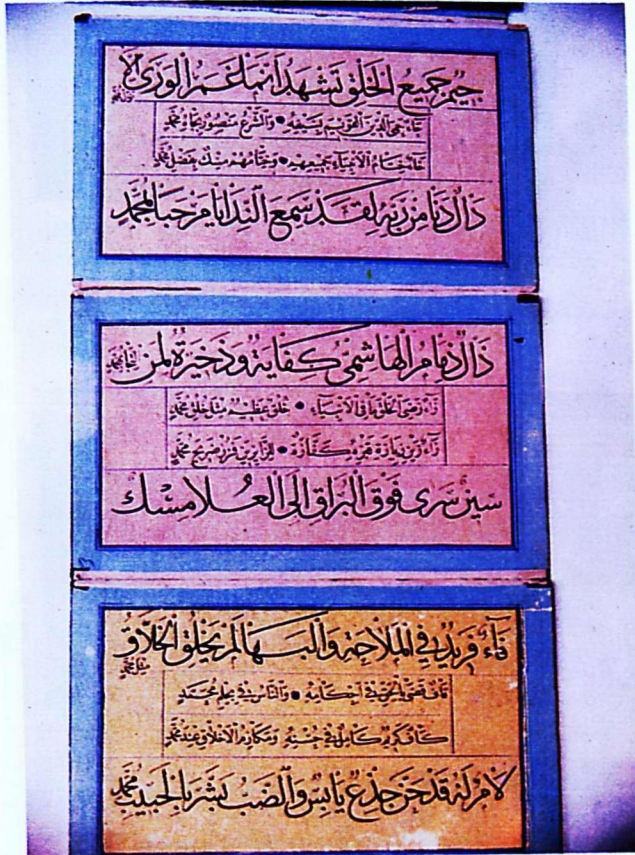 جيم جميع الخلق تشهد انما غمر الورى الا
حاء حمى الدين القويم بسيفه والشرع منصور بجاه محمد
خاء ختام الانبياء جميعهم وختامهم مسك بفضل محمد
دال دنا من ربه لقد سمع الندا يا مرحبا بمحمد
ذال ذمام الهاشمي كفاية وذخيرة لمن التجا بمحمد
راء رضي الخلق ما في الانبياء خلق عظيم مثل خلق محمد
زاء زيارة قبره كفارة للزايرين فزر ضريح محمد
سين سرى فوق البراق الى العلا مسك
فاء فريد في الملاحة والبها لم يخلق الخلاق مثل محمد
قاف قضى بالحق في احكامه والناس في محمد
كاف كريم كامل في حسنه ومكارم الاخلاق عند محمد
لام له قد حن جذع يابس والضب بشر بالحبيب محمد